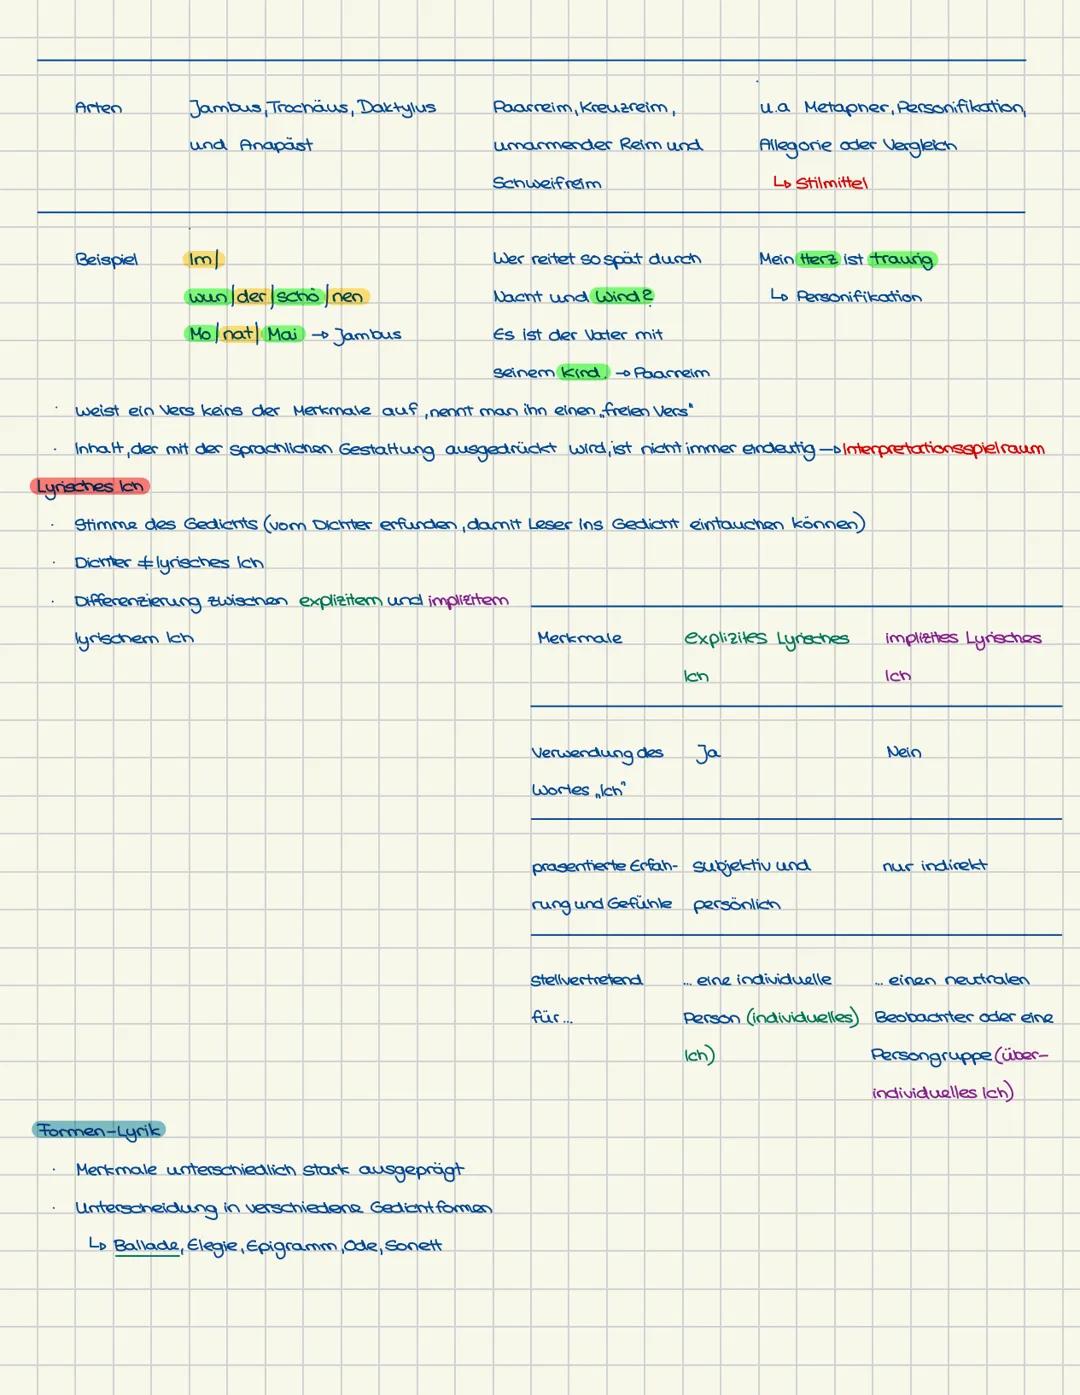 Arten Jambus, Trochäus, Daktylus Paarreim, Kreuzreim, u.a Metapher, Personifikation,
und Anapäst umarmender Reim und Allegorie oder Vergleich
Schweifreim ↳ Stilmittel
Beispiel Im| Wer reitet so spät durch Mein Herz ist traurig
wun|der|schö|nen Nacht und Wind? ↳ Personifikation
Mo|nat|Mai → Jambus Es ist der Vater mit
seinem Kind. → Paarreim
· weist ein Vers keins der Merkmale auf, nennt man ihn einen „freien Vers"
· Inhalt, der mit der sprachlichen Gestaltung ausgedrückt wird, ist nicht immer eindeutig → Interpretationsspielraum
Lyrisches Ich
· Stimme des Gedichts (vom Dichter erfunden, damit Leser ins Gedicht eintauchen können)
· Dichter ≠ lyrisches Ich
· Differenzierung zwischen explizitem und implizitem
lyrischem Ich Merkmale explizites Lyrisches implizites Lyrisches
Ich Ich
Verwendung des Ja Nein
Wortes „Ich"
präsentierte Erfah- subjektiv und nur indirekt
rung und Gefühle persönlich
stellvertretend ... eine individuelle ... einen neutralen
für... Person (individuelles) Beobachter oder eine
Ich) Persongruppe (über-
individuelles Ich)
Formen-Lyrik
· Merkmale unterschiedlich stark ausgeprägt
· Unterscheidung in verschiedene Gedichtformen
↳ Ballade, Elegie, Epigramm, Ode, Sonett